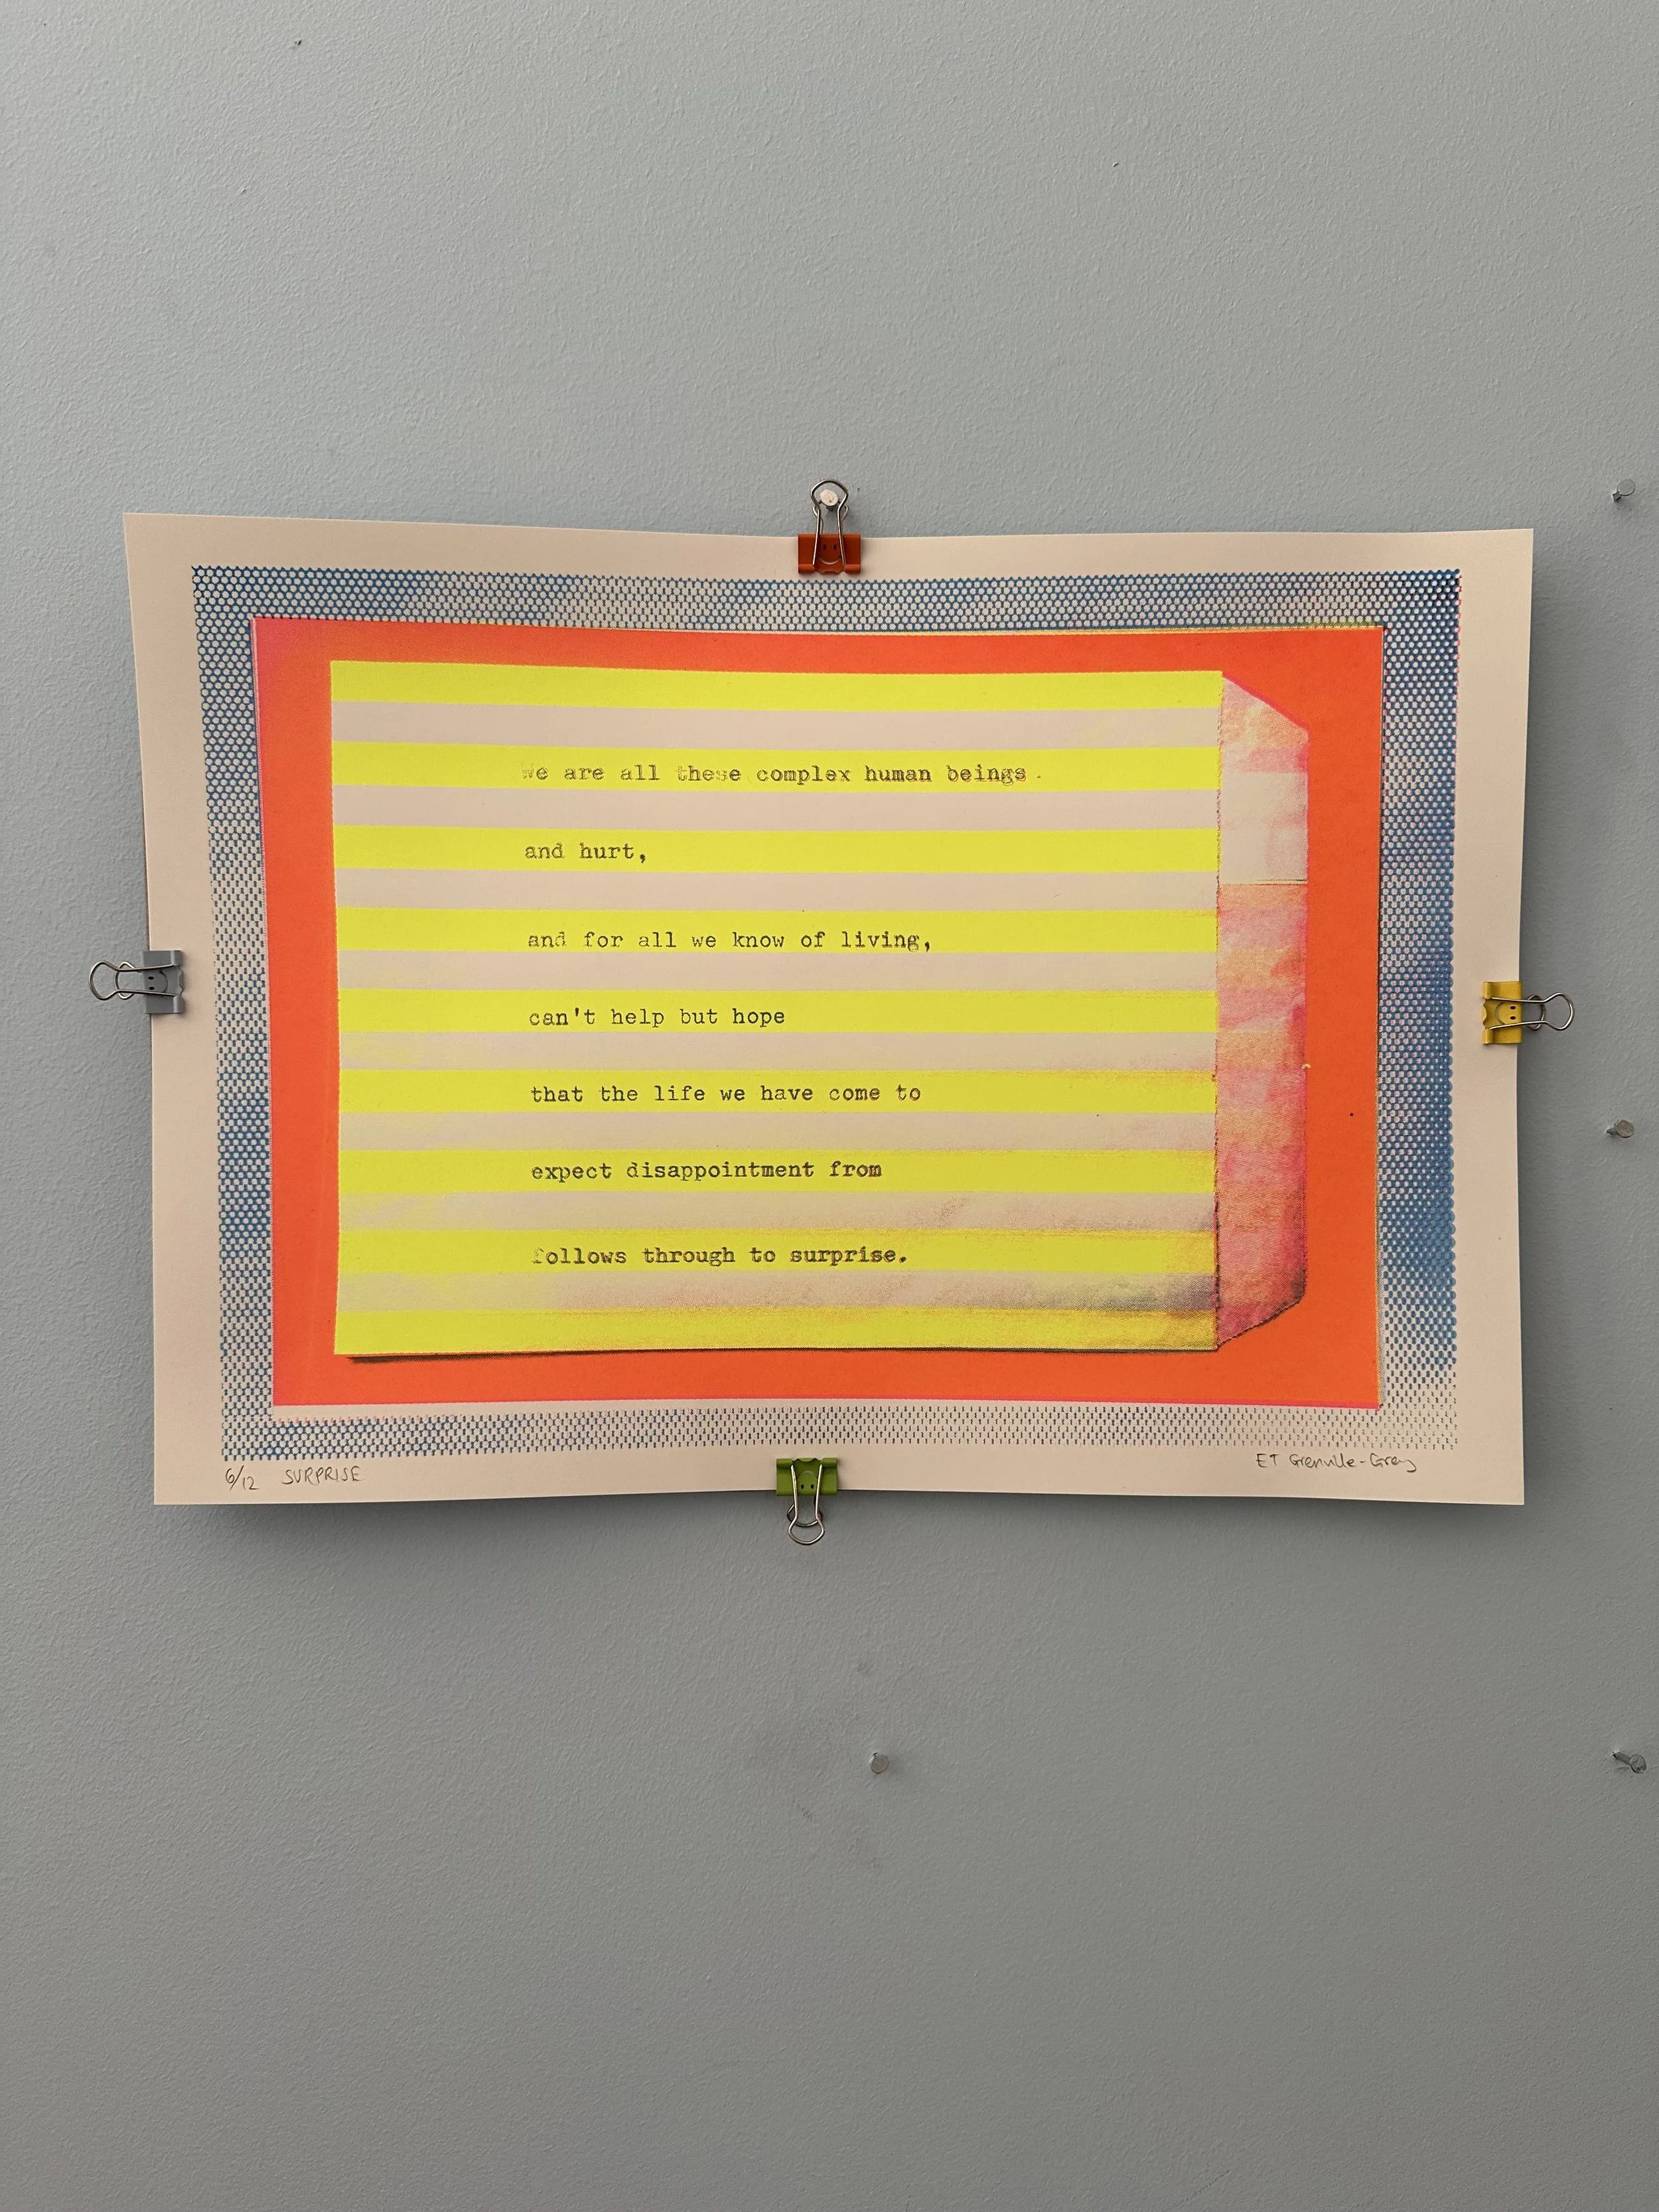 We are all these complex human beings.
and hurt,
and for all we know of living,
can't help but hope
that the life we have come to
expect disappointment from
follows through to surprise.
6/12 SURPRISE
ET Grenville-Grey